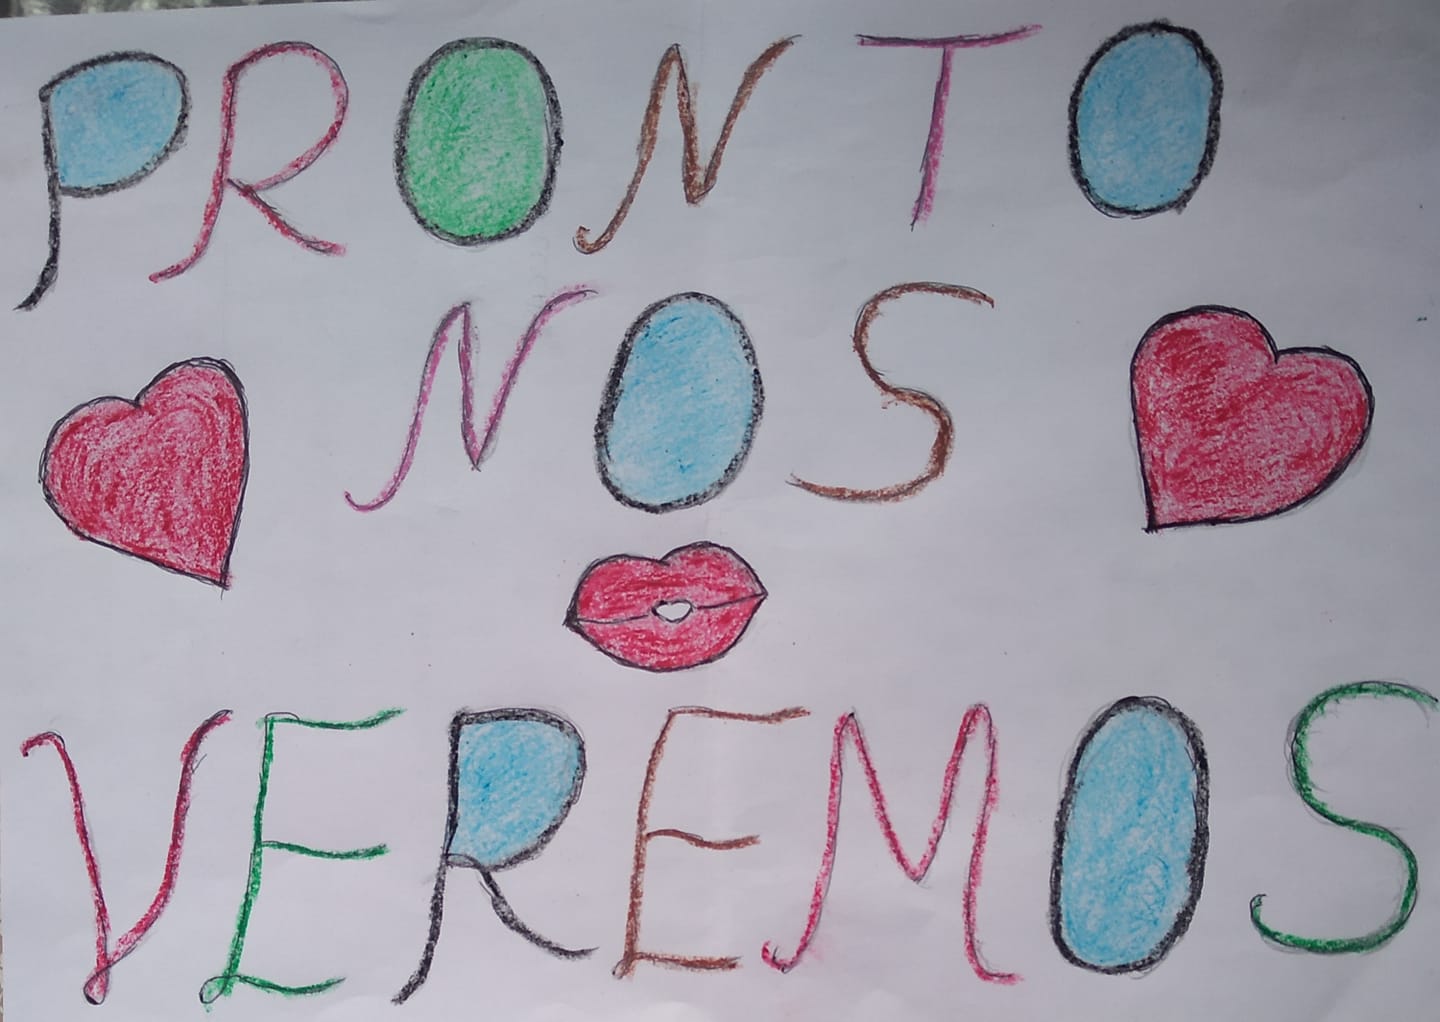 PRONTO
NOS
VEREMOS